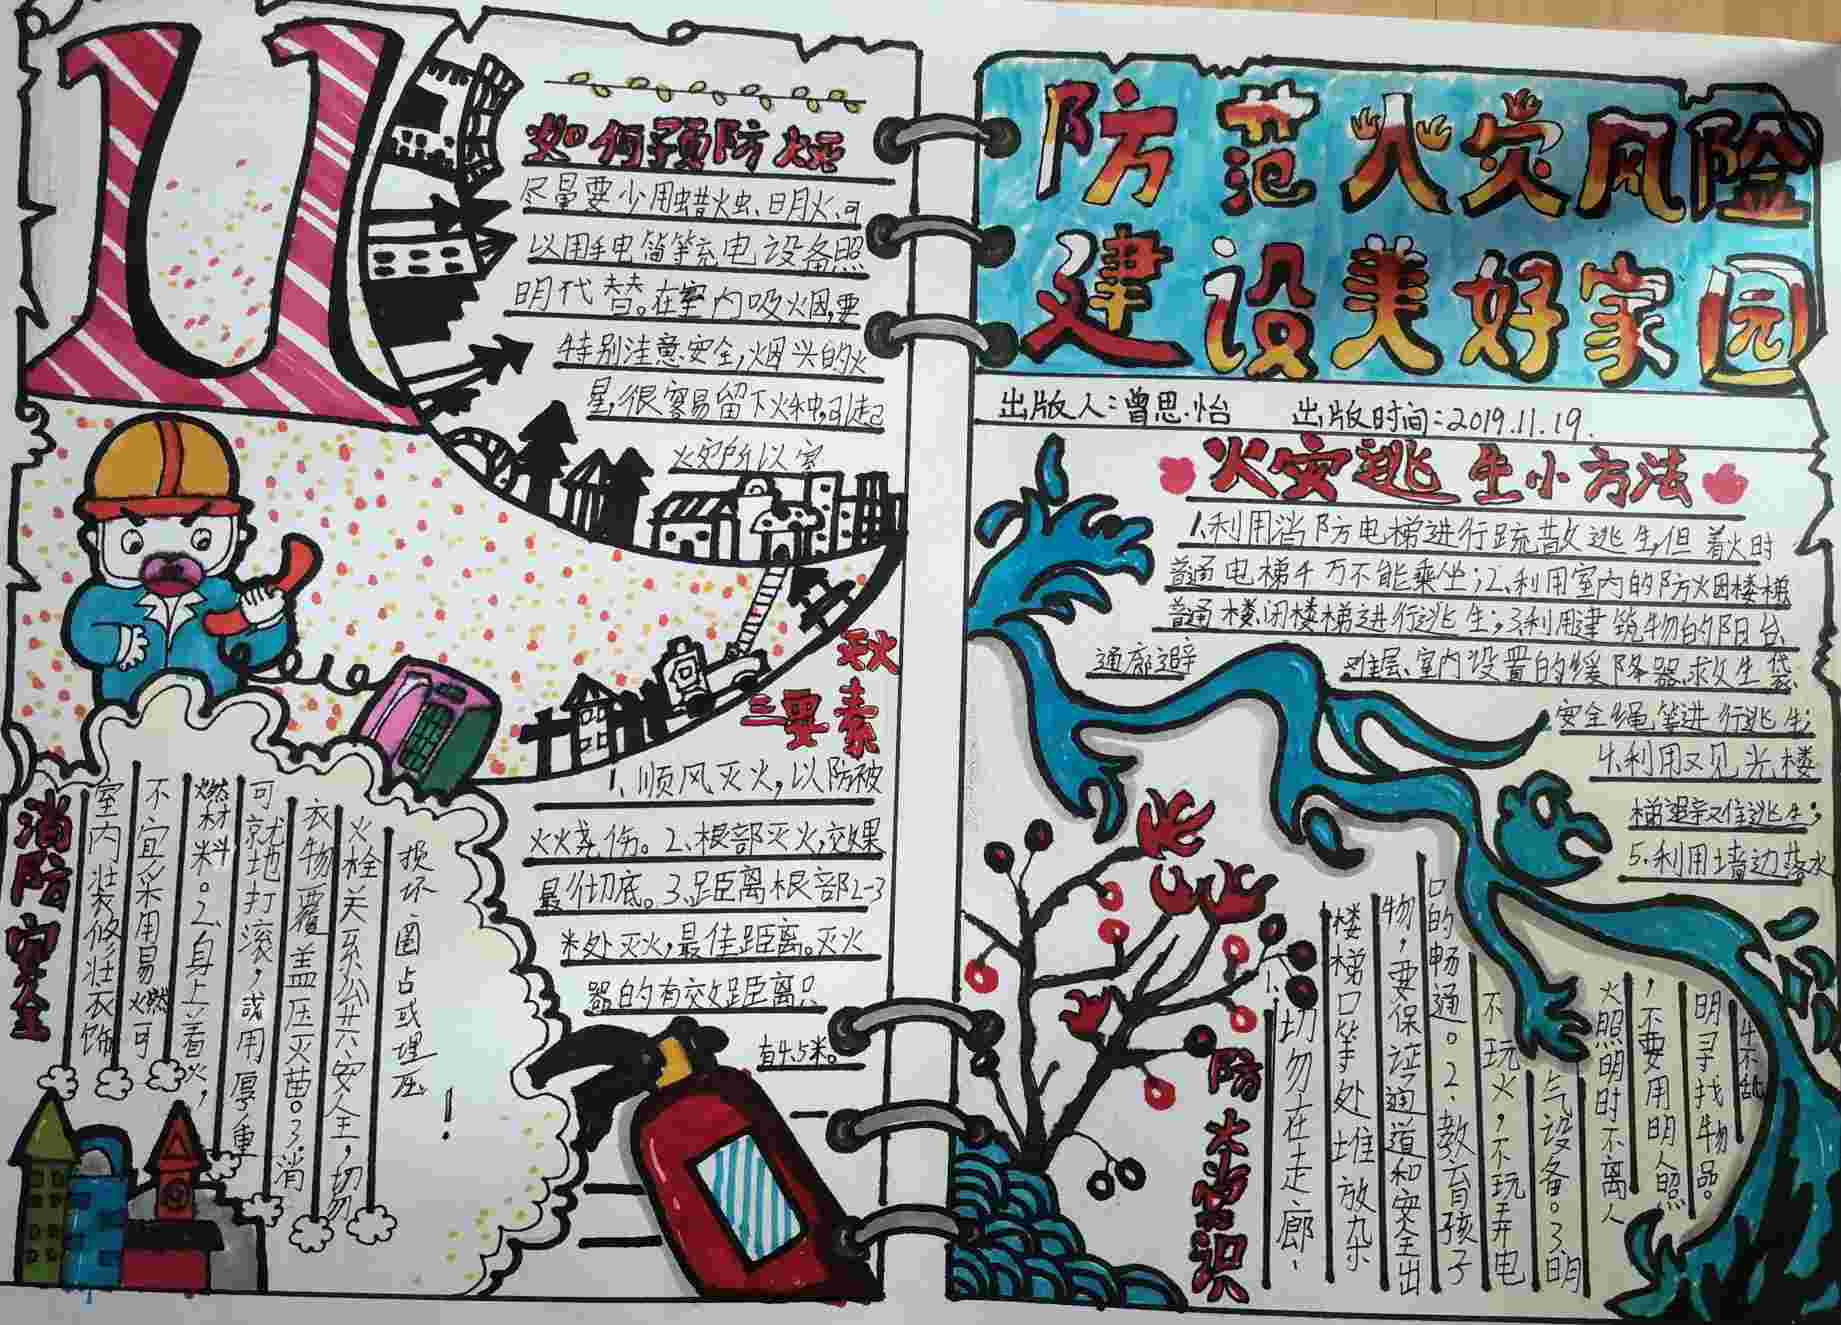 如何预防火灾
尽量要少用蜡火虫、日月火、可
以用手电筒等充电设备照
明代替。在室内吸烟,要
特别注意安全,烟头的火
星,很容易留下火种,引起
火灾所以室
灭火
三要素
1、顺风灭火，以防被
火火尧伤。2、根部灭火,效果
最彻底。3、距离根部2-3
米处灭火,最佳距离。灭火
器的有效距离只
有4.5米。
消防安全
室内装修壮衣饰
不宜采用易燃可
燃材料。2、身上着火,
可就地打滚,或用厚重
衣物覆盖压灭苗。3消
火栓关系公共安全,切勿
损坏圈占或埋压
!
防范火灾风险
建设美好家园
出版人:曾思怡 出版时间:2019.11.19.
火灾逃生小方法
1、利用消防电梯进行疏散逃生,但着火时
普通电梯千万不能乘坐;2、利用室内的防火因楼梯
普通楼、闭楼梯进行逃生;3、利用建筑物的阳台、
通廊避难层、室内设置的缓降器、救生袋、
安全绳等进行逃生;
4、利用又见光楼
梯避难住逃生;
5、利用墙边落水
防火常识
1、切勿在走廊、
楼梯口等处堆放杂
物,要保证通道和安全出
口的畅通。2、教育孩子
不玩火,不玩弄电
气设备。3、明
火照明时不离人
,不要用明人照
明寻找物品。
牛不乱